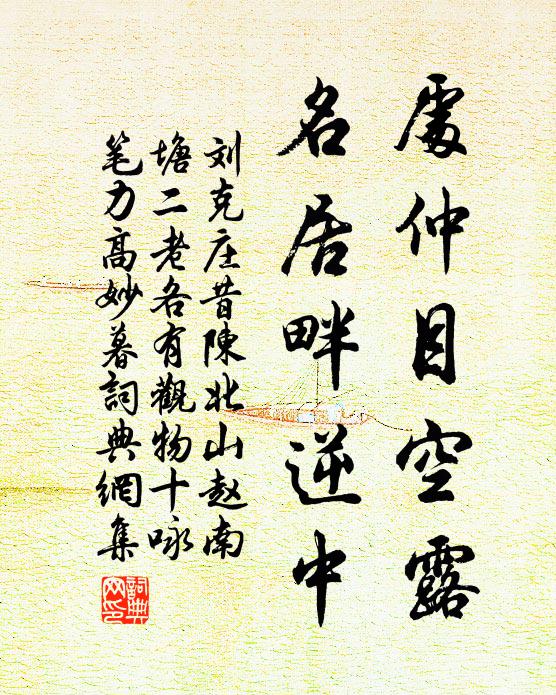 處仲目空露
名居畔逆中
刘克庄昔陳北山赵南
塘二老各有觀物十咏
笔力高妙暮詞典網集
詞典
网印